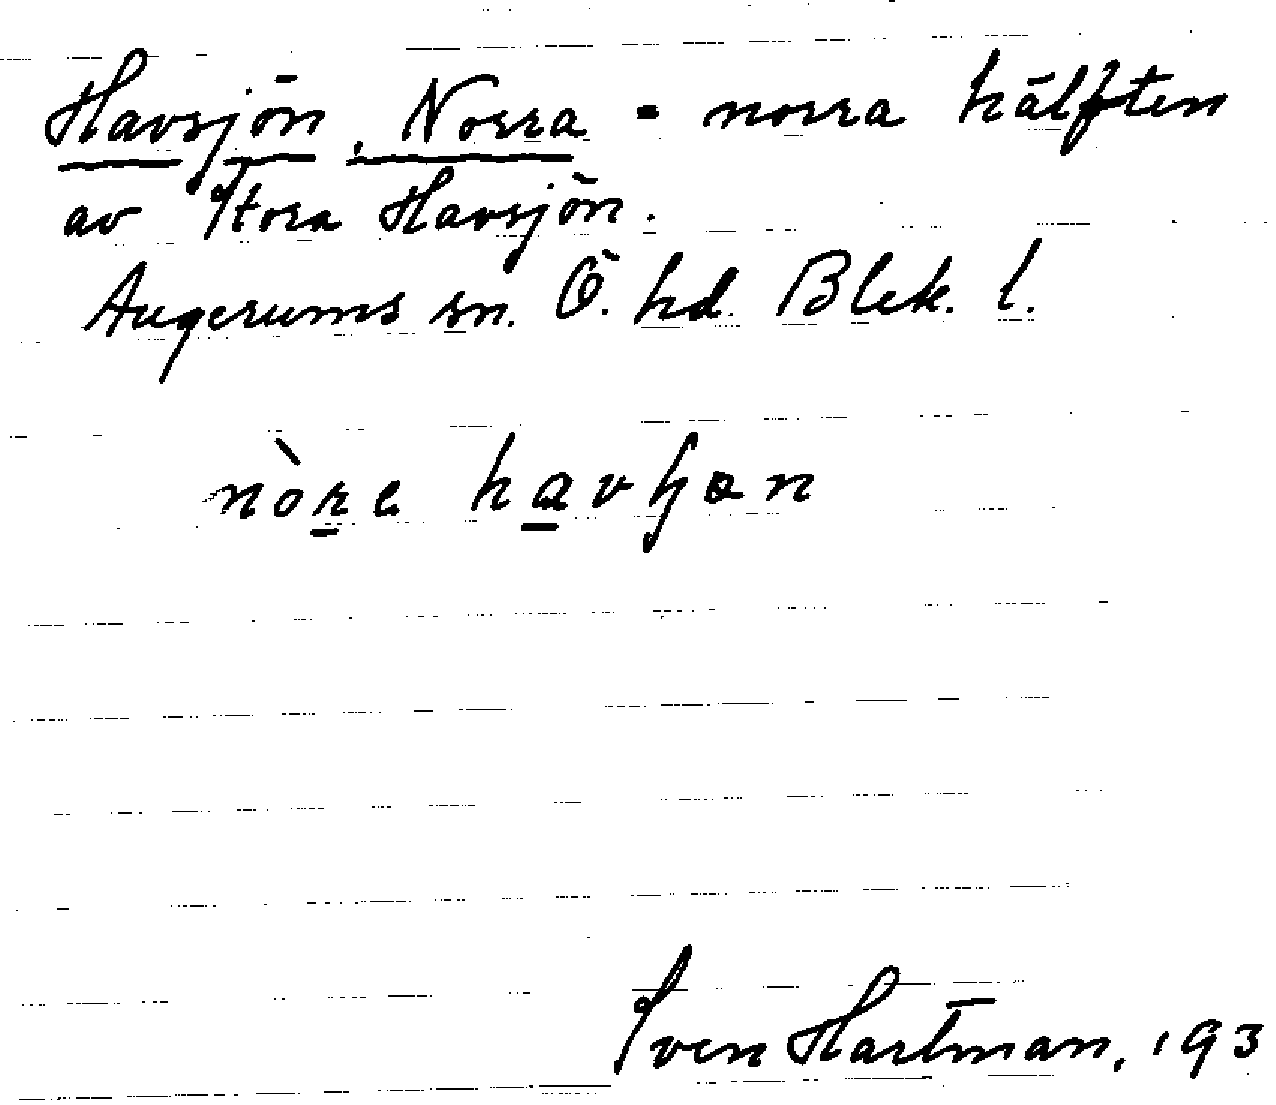 Havsjön, Norra = norra hälften
av Stora Havsjön.
Augerums sn. Ö. hd. Blek. l.
nòre
Sven Hartman, 193